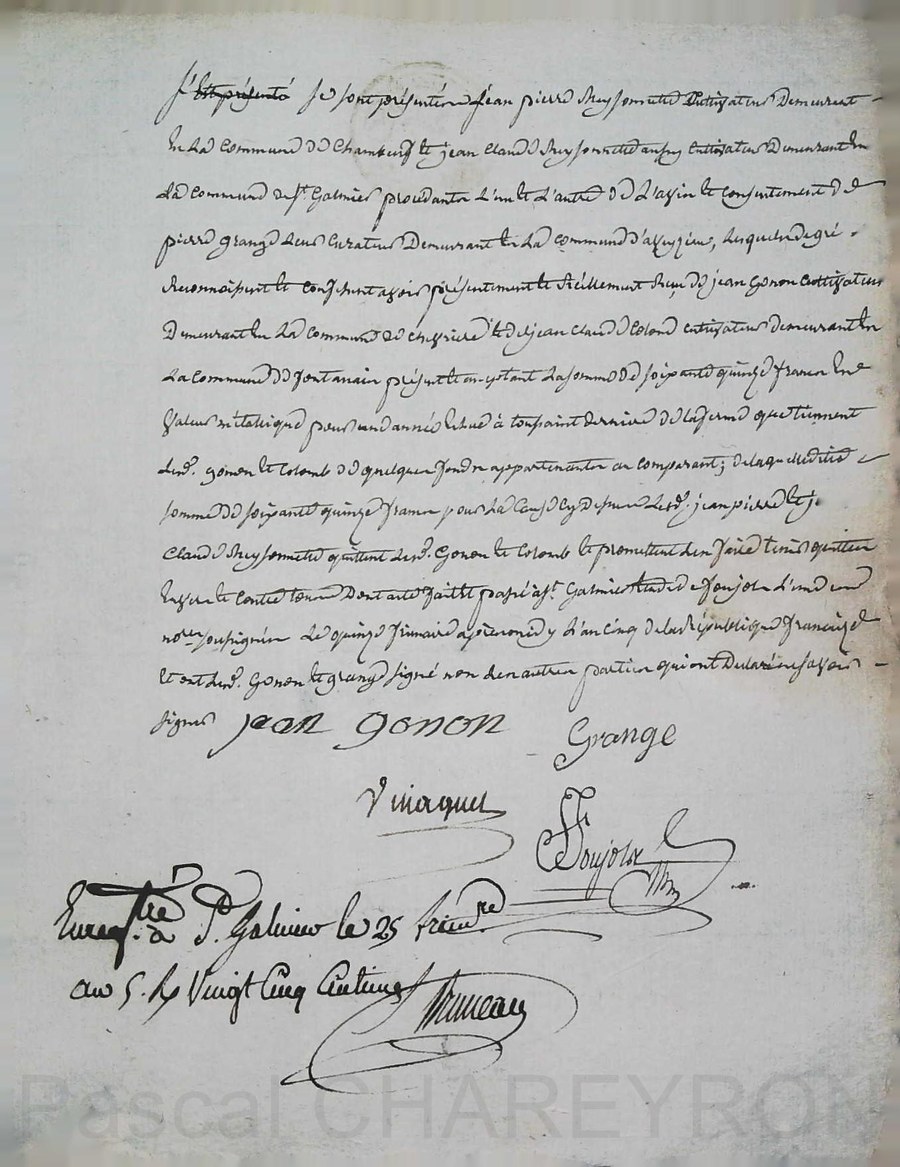 Se sont présentés Jean pierre Reyssonnette Cultivateur Demeurant
En La Commune de Chambeuf et jean Claude Reyssonnette aussy Cultivateur Demeurant En
La Commune de St. Galmier procédants L'un et L'autre de L'avis et Consentement de
pierre grange Leur Curateur Demeurant En La Commune d'aveyzieu, Lesquels de gré
Reconnoissent et Confessent avoir présentement et Réellement Reçu de jean Gonon Cultivateur
Demeurant En La Commune de chevriere et de jean Claude Colomb Cultivateur demeurant En
La Commune de fontanes présent et acceptant La somme de soixante quinze francs En
Valeur métalique pour une année Echue à toussaint derniere de La ferme que tiennent
Lesd. gonon et Colomb de quelques fonds appartenants au Comparant; de Laquelle dite
somme de soixante quinze francs pour La Cause Cy Dessus Lesd. jean pierre et j.
Claude Reyssonnette quittent Lesd. Gonon et Colomb et promettent Les En faire tenir quittes
Envers et Contre tous Dont acte fait et passé à St. Galmier Etude de foujols L'un des
nores. soussignés Le quinze frimaire après midy L'an Cinq de La République française
Et ont Lesd. Gonon et grange signé non Les autres parties qui ont Déclaré ne savoir
signer jean gonon Grange
Vinaguet
Foujols
Nre
Enregtré à St. Galmier le 25 frimre
an 5. Rx Vingt Cinq Centimes Bruneau
Pascal CHAREYRON